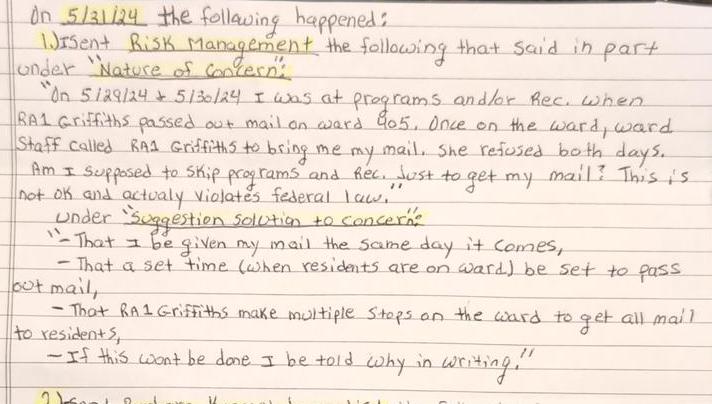 On 5/31/24 the following happened:
1.) I sent Risk Management the following that said in part
under "Nature of Concern":
"On 5/29/24 + 5/30/24 I was at programs and/or Rec. when
RA1 Griffiths passed out mail on ward 905. Once on the ward, ward
Staff called RA1 Griffiths to bring me my mail. She refused both days.
Am I supposed to skip programs and Rec. Just to get my mail? This is
not ok and actualy violates federal law."
under "Suggestion solution to concern":
"- That I be given my mail the same day it comes,
- That a set time (when residents are on ward) be set to pass
out mail,
- That RA1 Griffiths make multiple stops on the ward to get all mail
to residents,
- If this wont be done I be told why in writing."